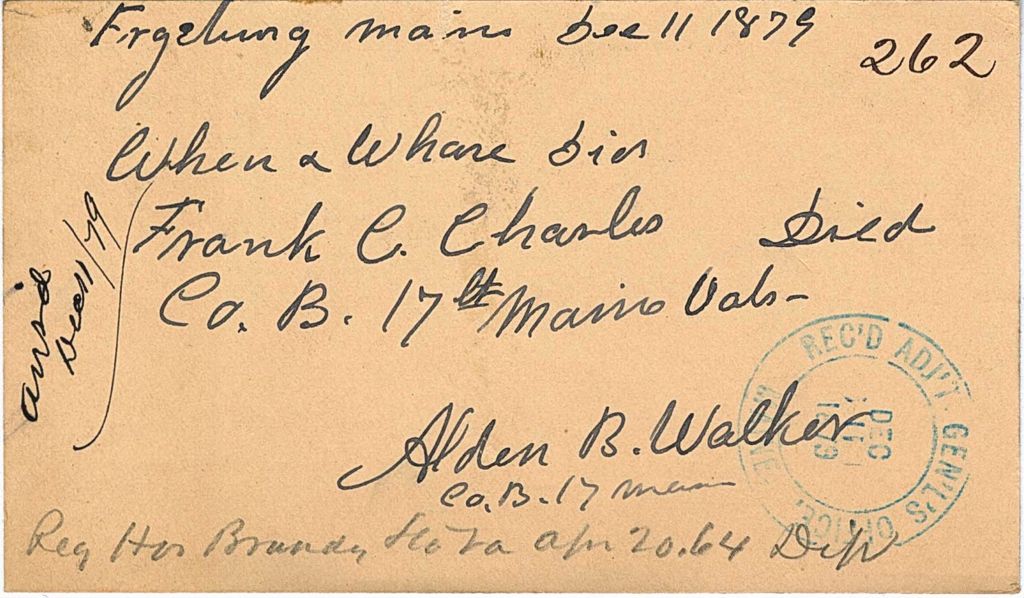 Fryeburg Main Dec 11 1879
262
When & Whare Did
Frank C. Charles Died
Co. B. 17th Maine Vols-
Ansd
Dec 11/79
Alden B. Walker
Co. B. 17 Maine
REC'D ADJ'T GEN'L'S OFFICE,
DEC
1879
Reg Hos Brandy Sta Va Apr 20.64 Dip